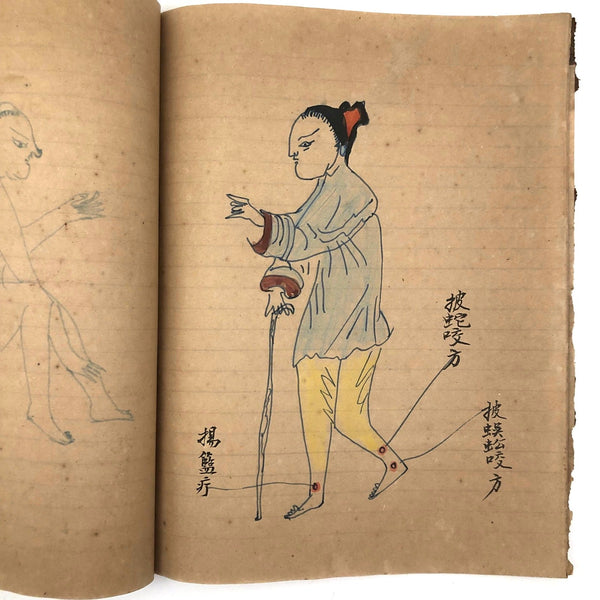 披蛇咬方
披蜈蚣咬方
揚籃疔